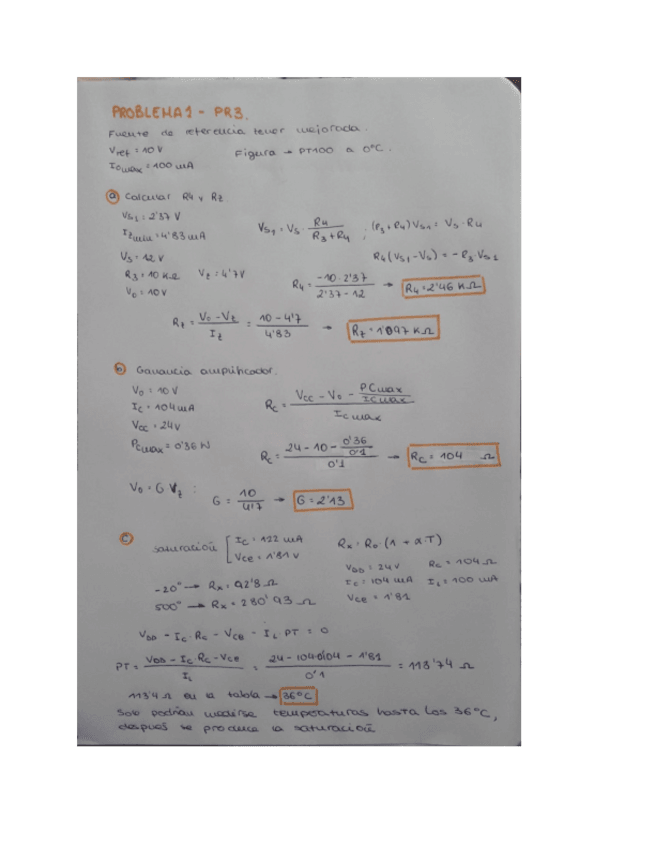 PROBLEMA 1 - PR3.
Fuente de referencia zener mejorada.
Vref = 10 V
Iomax = 100 mA
Figura → PT100 a 0ºC.
a Calcular R4 y Rz
Vs1 = 2'37 V
Izmin = 4'83 mA
Vs = 12 V
R3 = 10 KΩ Vz = 4'7 V
Vo = 10 V
Vs1 = Vs · R4 / (R3 + R4) ; (R3 + R4) Vs1 = Vs · R4
R4 (Vs1 - Vs) = - R3 · Vs1
R4 = -10 · 2'37 / (2'37 - 12) → R4 = 2'46 KΩ
Rz = (Vo - Vz) / Iz = (10 - 4'7) / 4'83 → Rz = 1'097 KΩ
b Ganancia amplificador.
Vo = 10 V
Ic = 104 mA
Vcc = 24 V
Pcmax = 0'36 W
Rc = (Vcc - Vo - PCmax / ICmax) / Icmax
Rc = (24 - 10 - 0'36 / 0'1) / 0'1 → Rc = 104 Ω
Vo = G Vz :
G = 10 / 4'7 → G = 2'13
c
saturación [ Ic = 122 mA
VCE = 1'81 V
Rx = Ro · (1 + α·T)
VDD = 24 V Rc = 104 Ω
Ic = 104 mA IL = 100 mA
VCE = 1'81
-20º → Rx = 92'8 Ω
500º → Rx = 280'93 Ω
VDD - Ic · Rc - VCE - IL · PT = 0
PT = (VDD - Ic · Rc - VCE) / IL = (24 - 104·0'104 - 1'81) / 0'1 = 113'74 Ω
113'4 Ω en la tabla → 36ºC
Solo podrían medirse temperaturas hasta los 36ºC,
después se produce la saturación